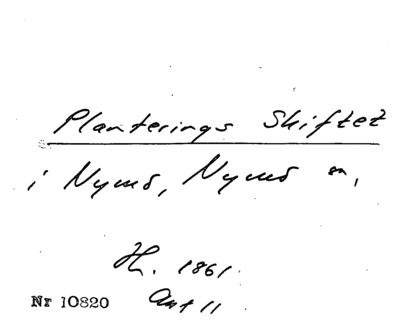 Planterings Skiftet
i Nymö, Nymö sn,
H. 1861.
Akt 11
Nr 10820